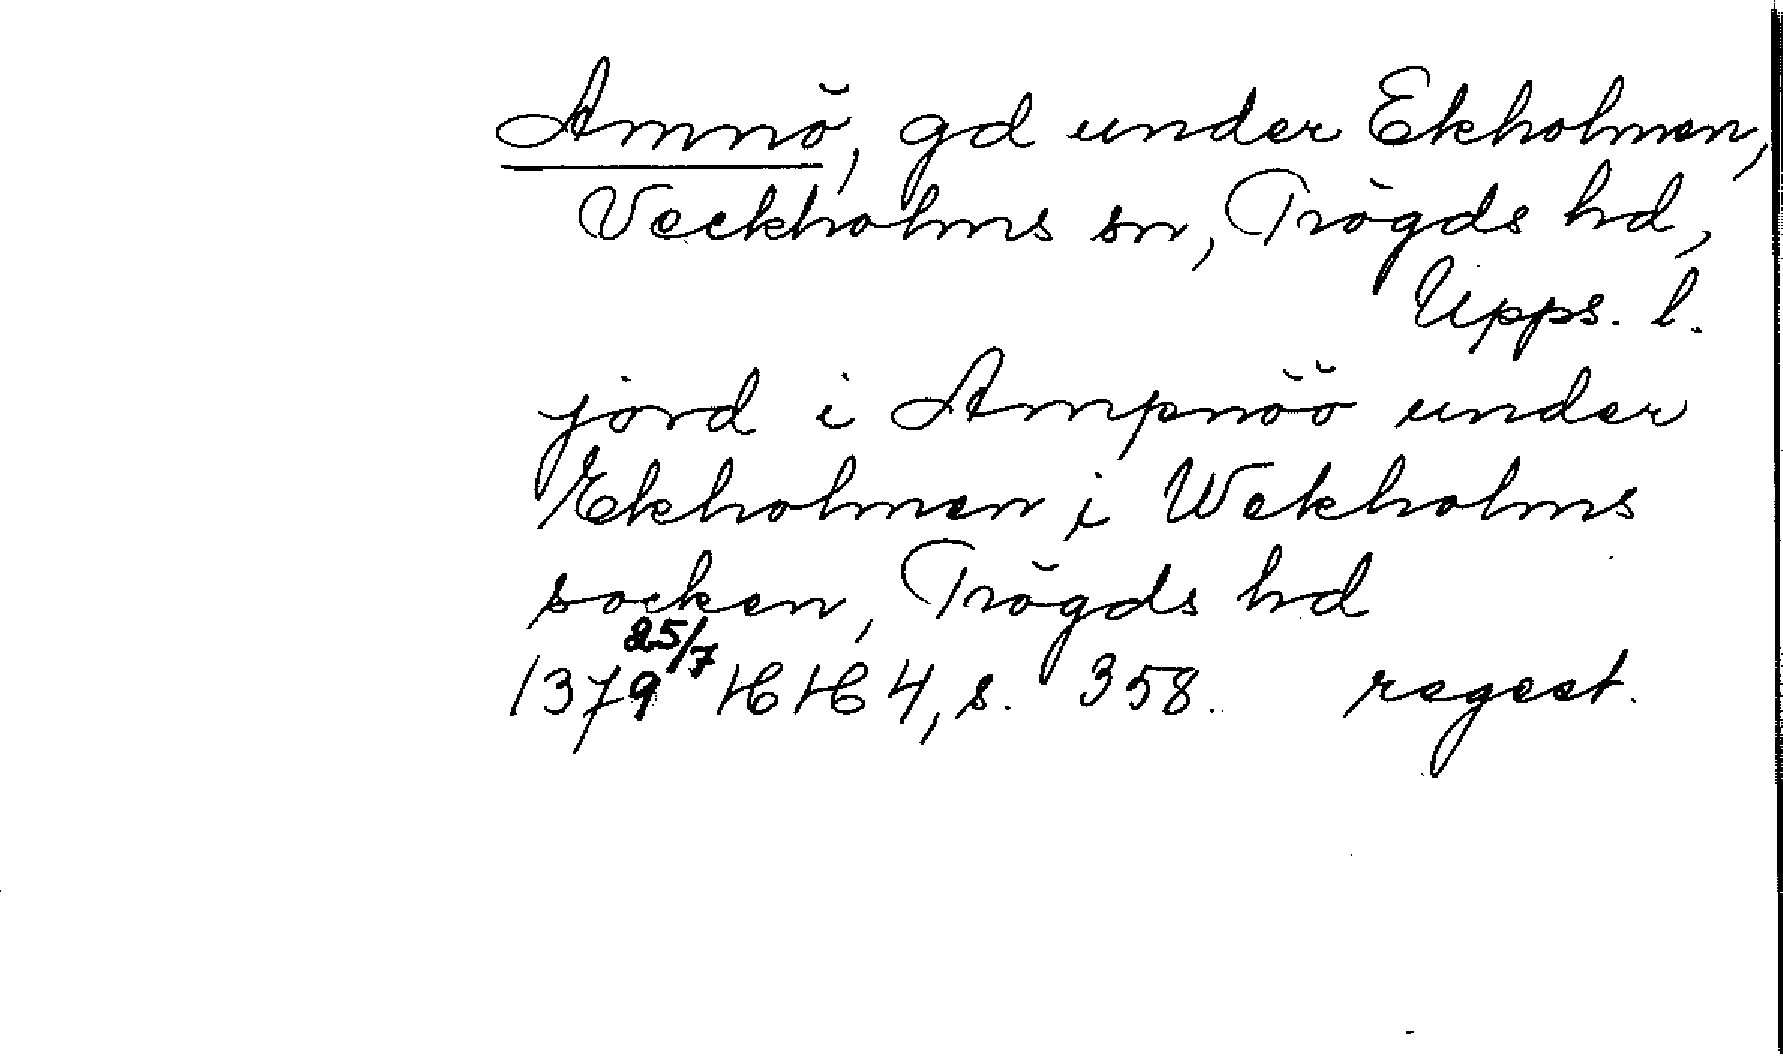 Amnö, gd under Ekholmen,
Veckholms sn, Trögds hd,
Upps. l.
jord i Ampnöö under
Ekholmen i Wekholms
socken, Trögds hd
1379 25/7 HH 4, s. 358. regest.